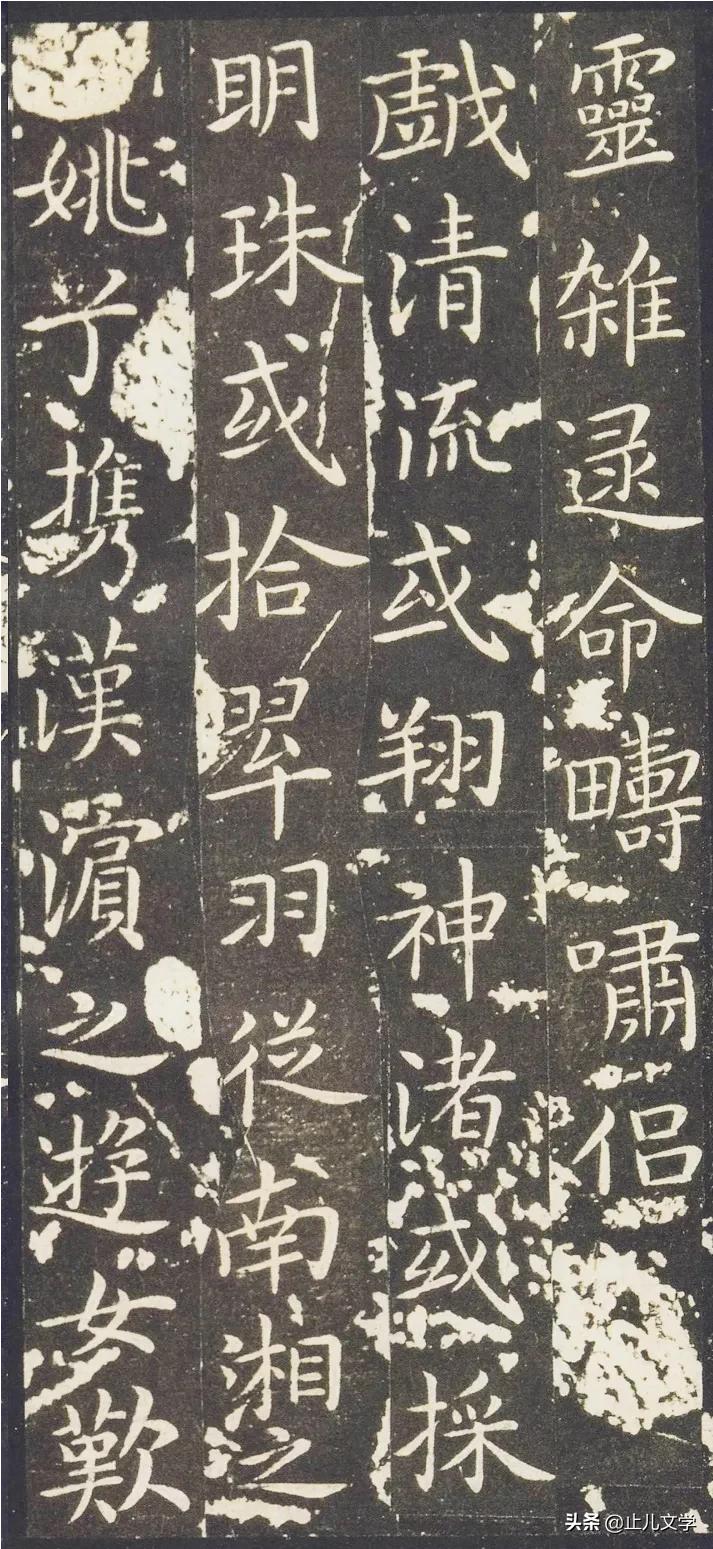 靈雜遝命疇嘯侶
戲清流或翔神渚或採
明珠或拾翠羽從南湘之
姚兮携漢濱之遊女歎
头条 @止儿文学